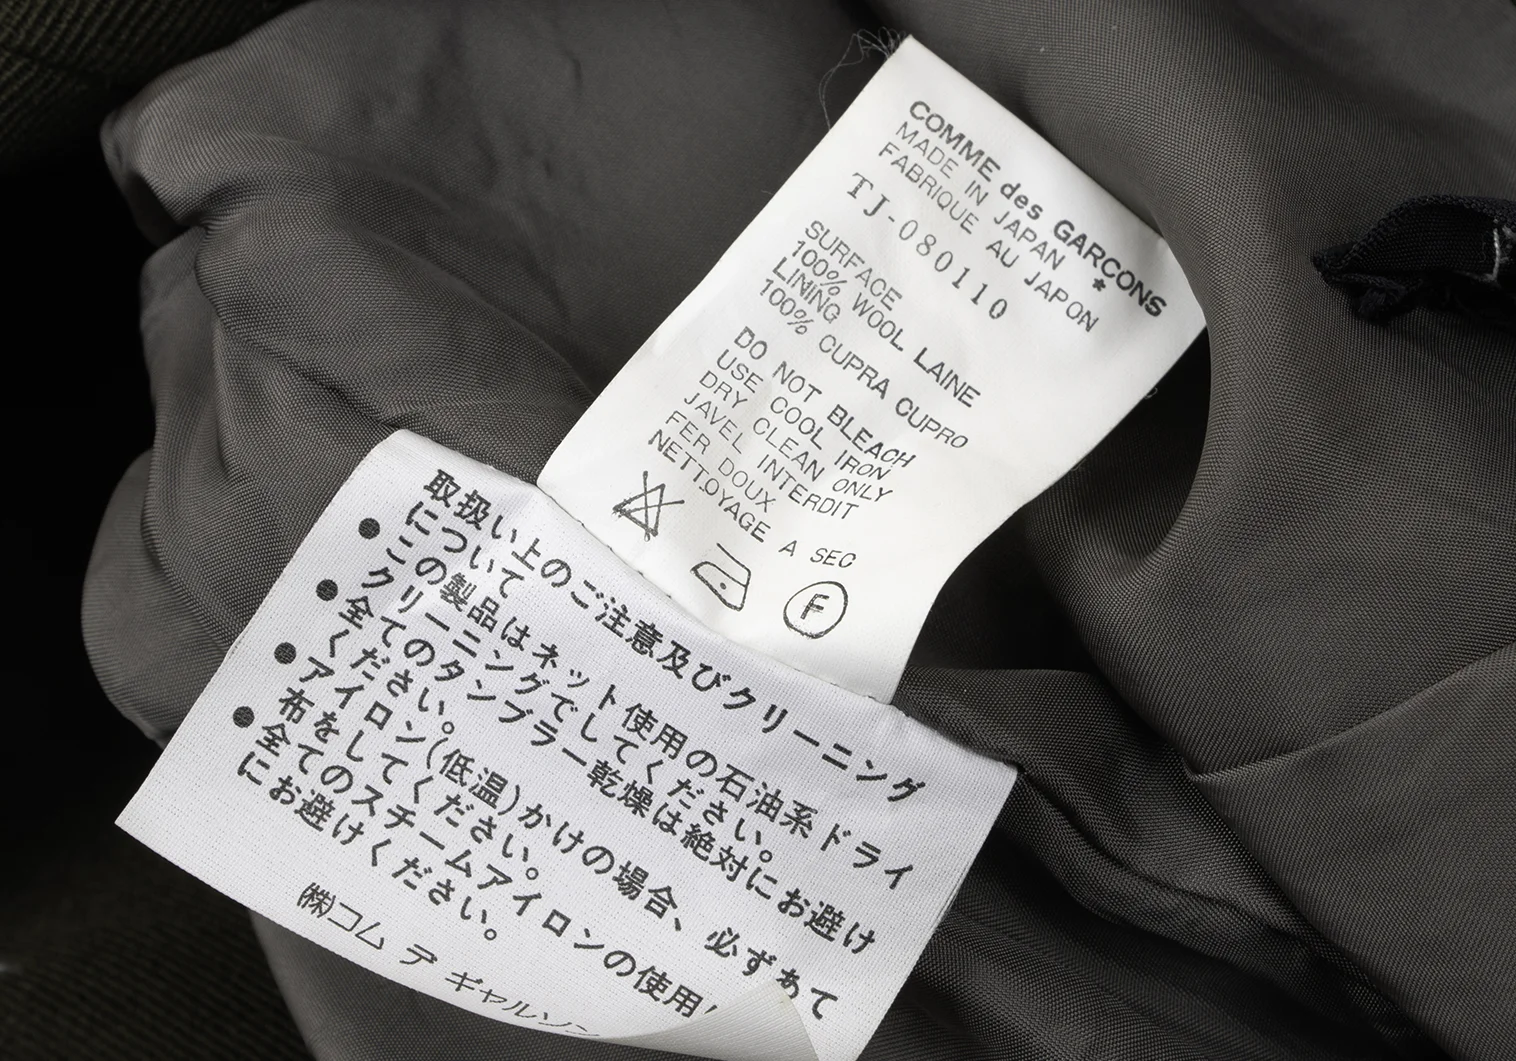 COMME des GARCONS
MADE IN JAPAN *
FABRIQUE AU JAPON
TJ-080110
SURFACE
100% WOOL LAINE
LINING
100% CUPRA CUPRO
DO NOT BLEACH
USE COOL IRON
DRY CLEAN ONLY
JAVEL INTERDIT
FER DOUX
NETTOYAGE A SEC
F
取扱い上のご注意及びクリーニング
について
●この製品はネット使用の石油系ドライ
クリーニングでしてください。
●全てのタンブラー乾燥は絶対にお避け
ください。
●アイロン(低温)かけの場合、必ずあて
布をしてください。
●全てのスチームアイロンの使用
にお避けください。
㈱コム デ ギャルソン